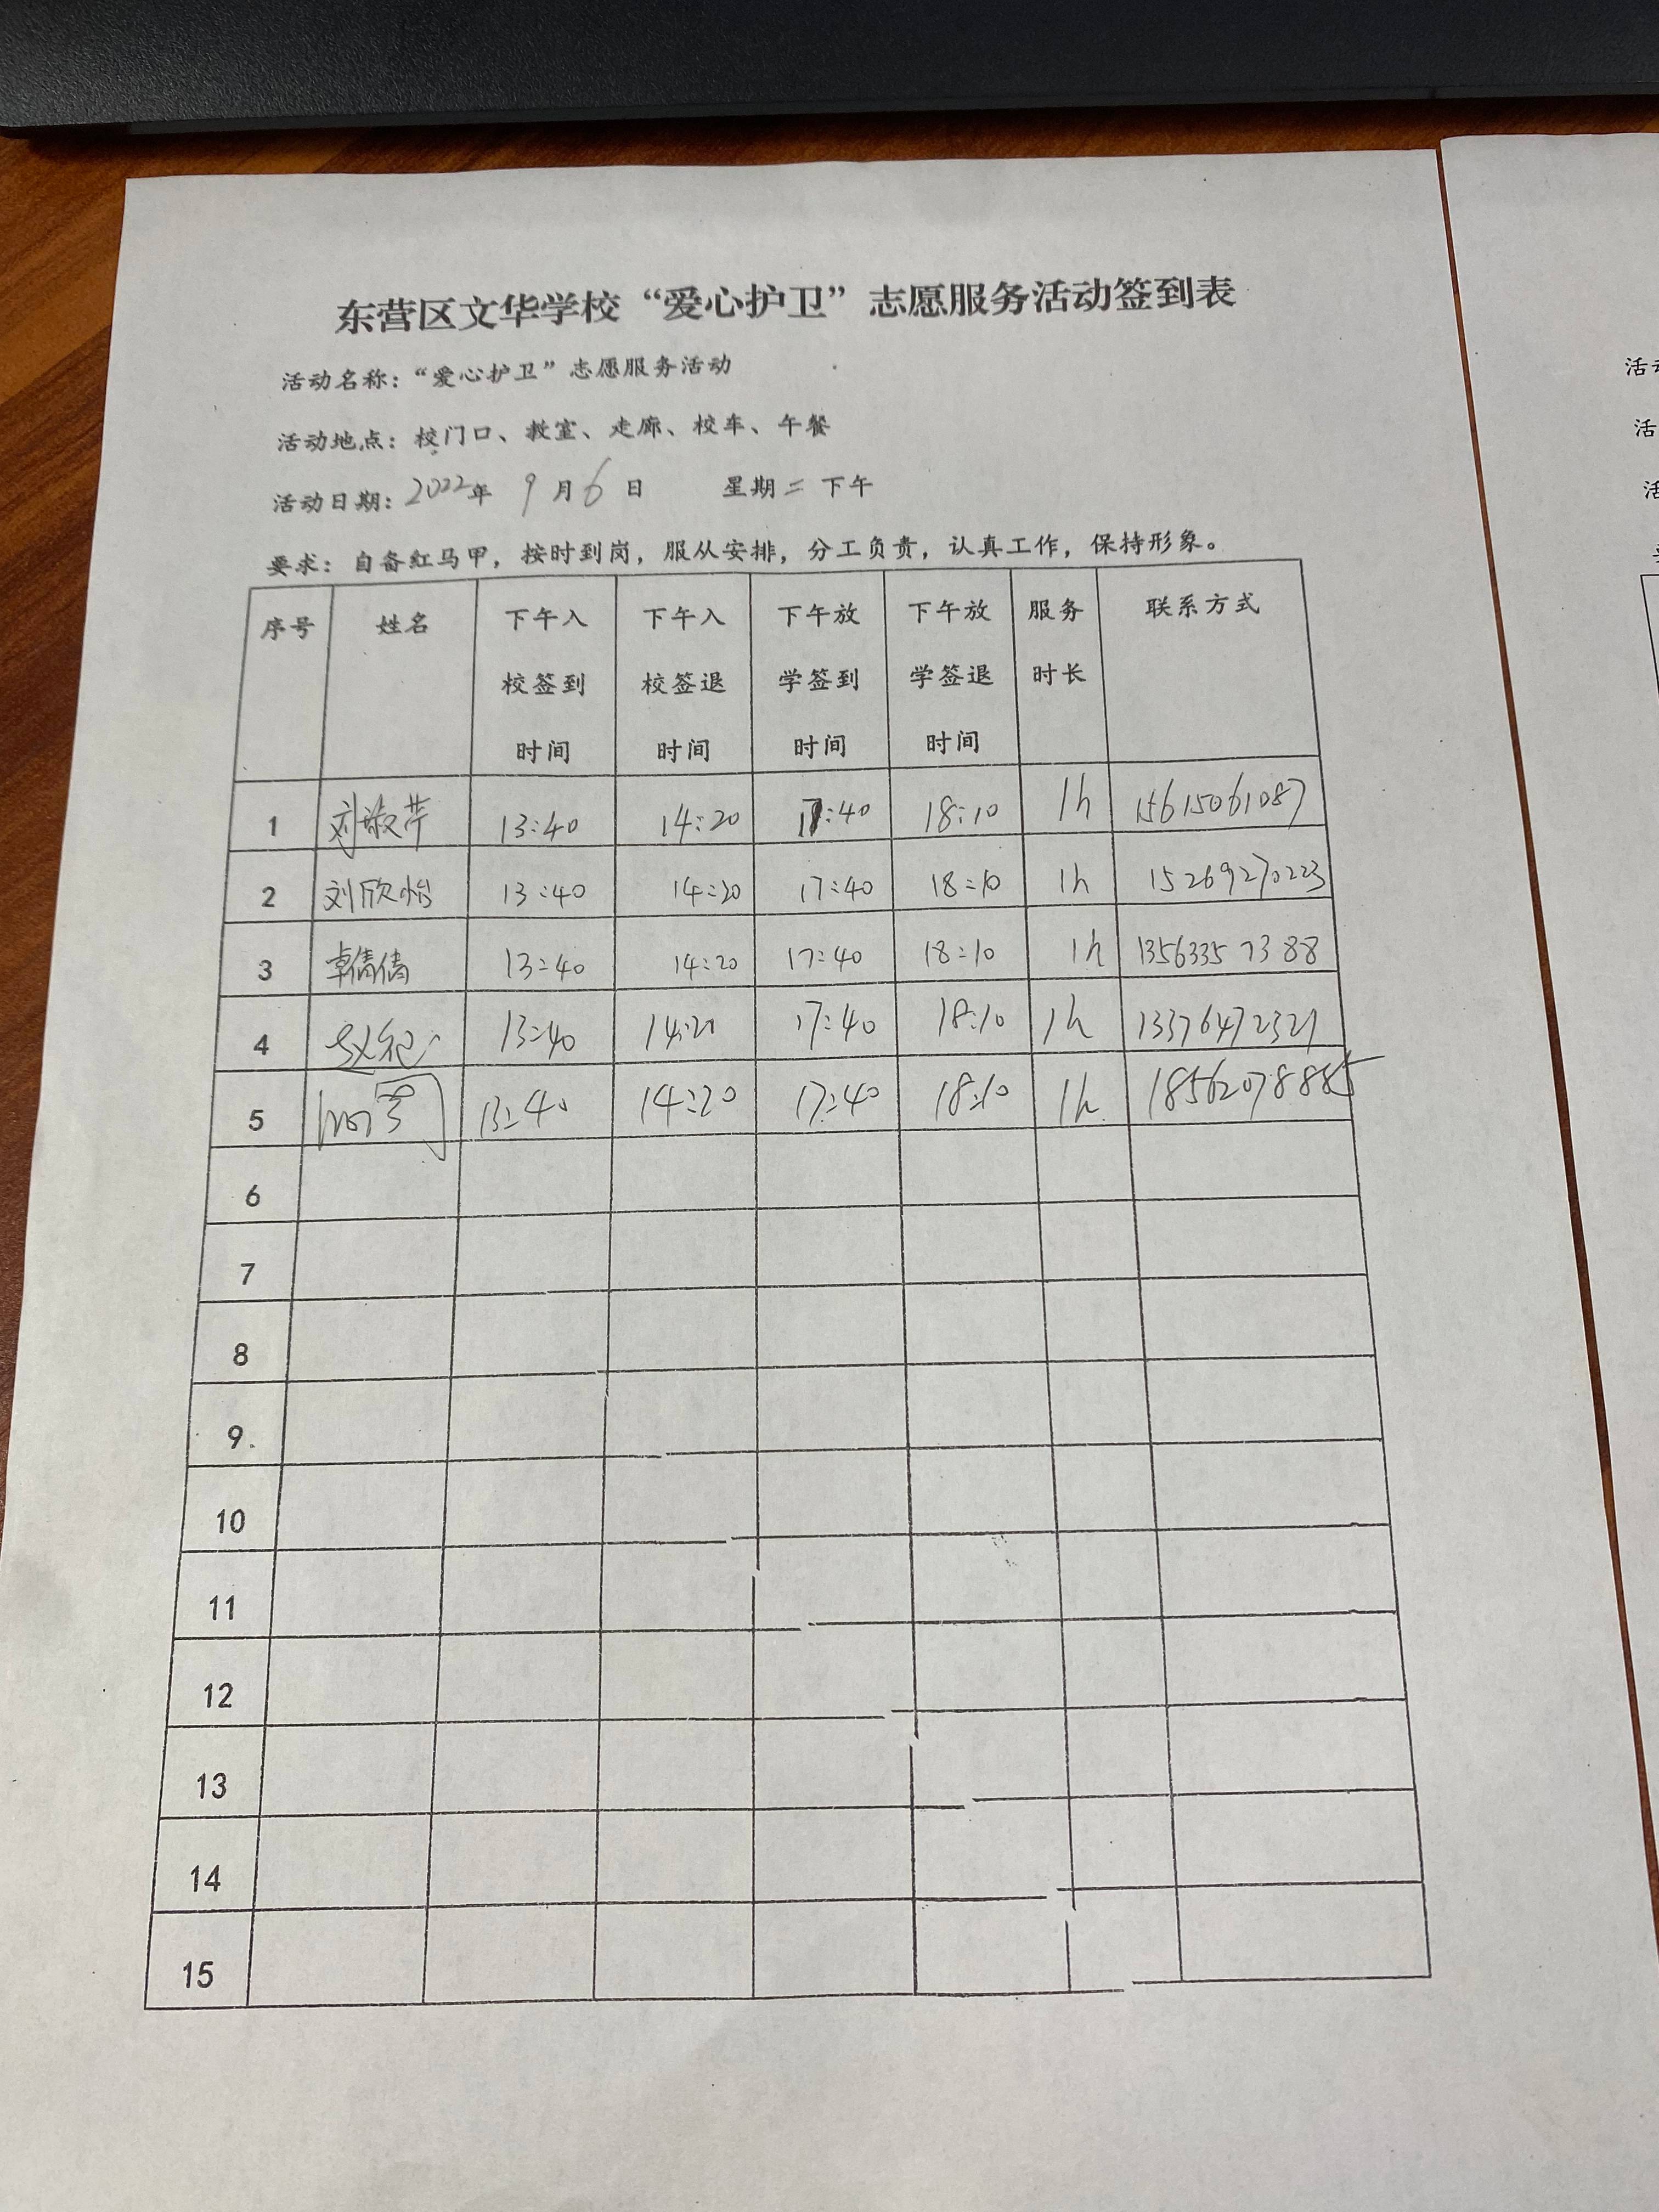 东营区文华学校“爱心护卫”志愿服务活动签到表
活动名称：“爱心护卫”志愿服务活动
活动地点：校门口、教室、走廊、校车、午餐
活动日期：2022年 9月6日 星期二 下午
要求：自备红马甲，按时到岗，服从安排，分工负责，认真工作，保持形象。
序号 姓名 下午入校签到时间 下午入校签退时间 下午放学签到时间 下午放学签退时间 服务时长 联系方式
1 刘敬芹 13:40 14:20 17:40 18:10 1h 15615061087
2 刘欣怡 13:40 14:20 17:40 18:10 1h 15269270223
3 卓倩倩 13:40 14:20 17:40 18:10 1h 13563357388
4 13:40 14:20 17:40 18:10 1h 13376472321
5 13:40 14:20 17:40 18:10 1h 18562078885
6
7
8
9
10
11
12
13
14
15
活
活
活